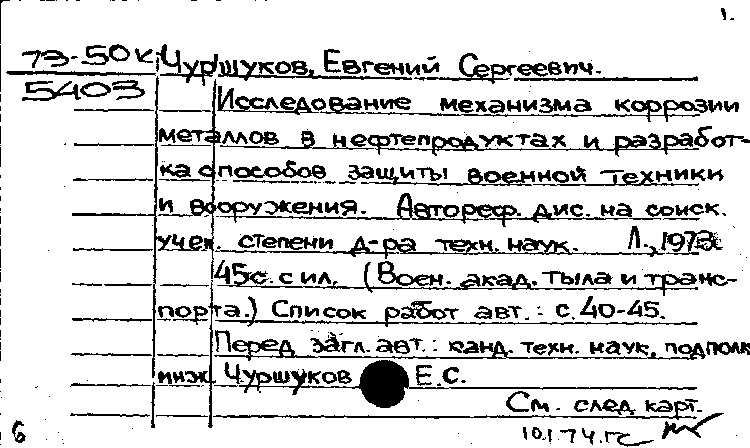 1.
73-50к Чуршуков, Евгений Сергеевич.
5403 Исследование механизма коррозии
металлов в нефтепродуктах и разработ-
ка способов защиты военной техники
и вооружения. Автореф. дис. на соиск.
учен. степени д-ра техн. наук. Л., 1973
45с. с ил. (Воен. акад. тыла и транс-
порта.) Список работ авт.: с. 40-45.
Перед загл. авт.: канд. техн. наук, подполк
инж. Чуршуков Е.С.
См. след. карт.
6